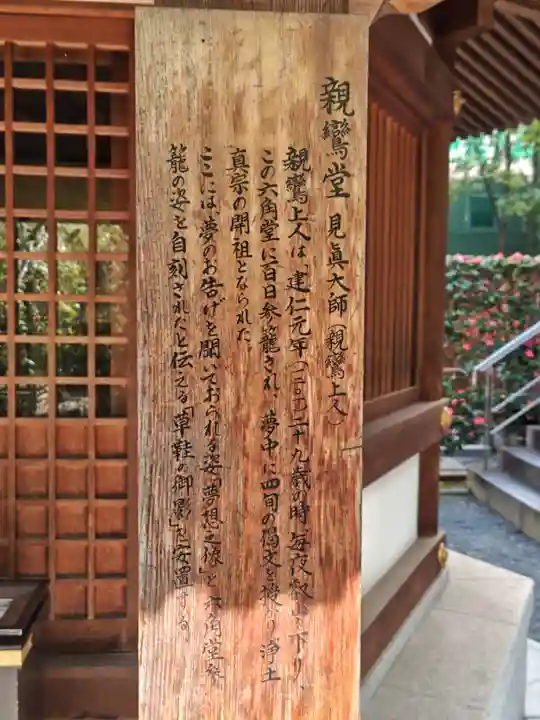 親鸞堂 見眞大師(親鸞上人)
親鸞上人は、建仁元年(一二〇一)二十九歳の時、毎夜叡山を下り、
この六角堂に百日参籠され、夢中に四句の偈文を授かり浄土
真宗の開祖となられた。
ここには、夢のお告げを聞いておられる姿「夢想之像」と六角堂参
籠の姿を自刻されたと伝える「草鞋の御影」を安置する。